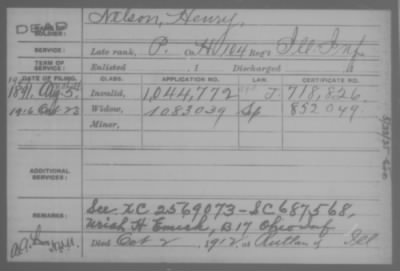 DEAD
NAME OF SOLDIER: Nelson, Henry,
SERVICE: Late rank, P. Co. H, 104 Reg't Ill Inf
TERM OF SERVICE: Enlisted , 1 Discharged , 1
DATE OF FILING. CLASS. APPLICATION NO. LAW. CERTIFICATE NO.
1891. Aug. 5. Invalid, 1,044,772 J. 718,826.
1916 Oct 23 Widow, 1083039 Sp 852049
Minor,
ADDITIONAL SERVICES:
REMARKS: See XC 2569073 - SC 687568,
Uriah H Emick, B 17 Ohio Inf
Died Oct 2, 1912, at Rutland Ill